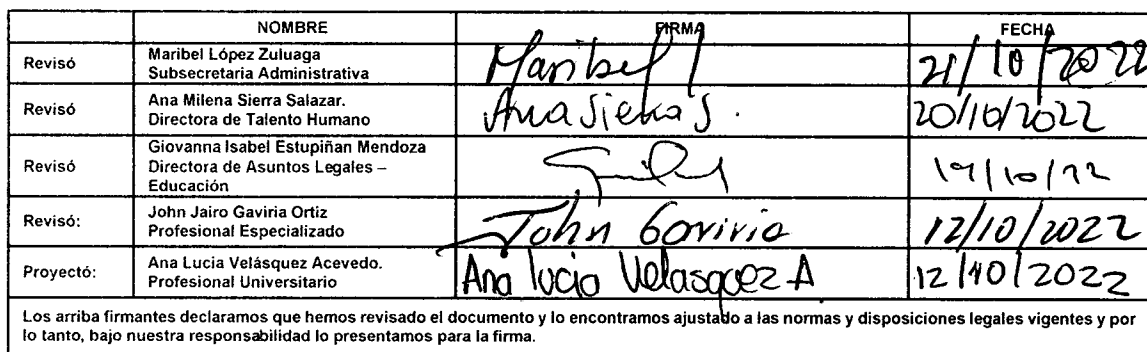 NOMBRE FIRMA FECHA
Revisó Maribel López Zuluaga
Subsecretaria Administrativa Maribel 21/10/2022
Revisó Ana Milena Sierra Salazar.
Directora de Talento Humano Ana Sierra S. 20/10/2022
Revisó Giovanna Isabel Estupiñan Mendoza
Directora de Asuntos Legales –
Educación 19/10/22
Revisó: John Jairo Gaviria Ortiz
Profesional Especializado John Gaviria 12/10/2022
Proyectó: Ana Lucia Velásquez Acevedo.
Profesional Universitario Ana lucia Velasquez A 12/10/2022
Los arriba firmantes declaramos que hemos revisado el documento y lo encontramos ajustado a las normas y disposiciones legales vigentes y por
lo tanto, bajo nuestra responsabilidad lo presentamos para la firma.